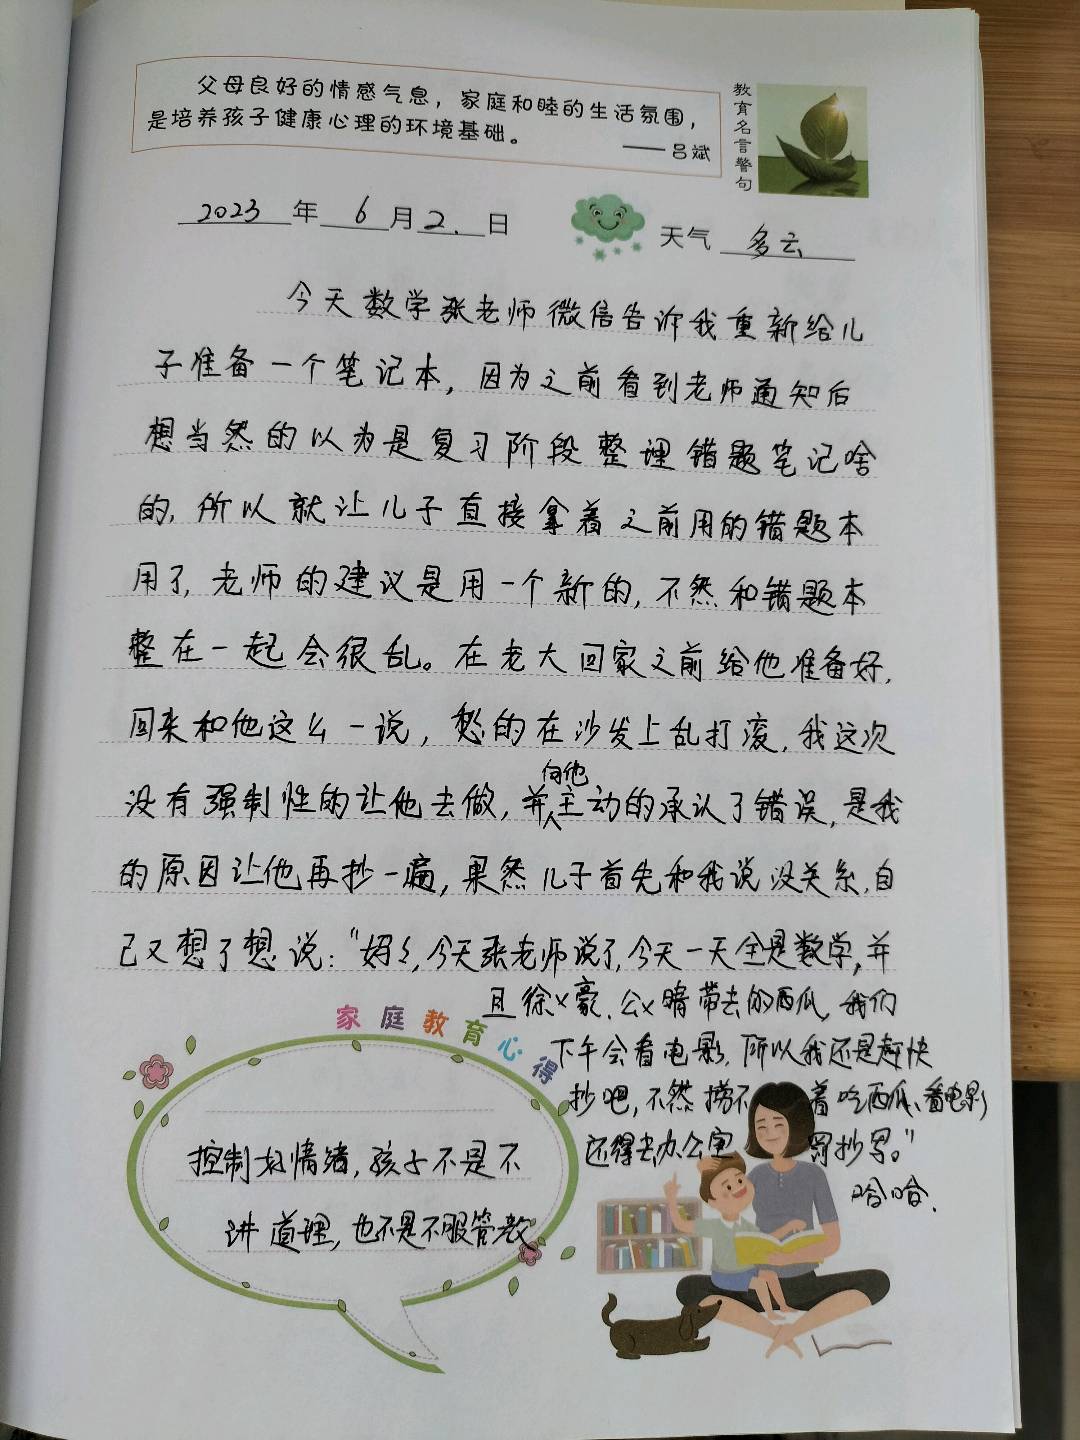 父母良好的情感气息，家庭和睦的生活氛围，
是培养孩子健康心理的环境基础。
——吕斌
教育名言警句
2023年6月2.日
天气 多云
今天数学张老师微信告诉我重新给儿
子准备一个笔记本，因为之前看到老师通知后
想当然的以为是复习阶段整理错题笔记啥
的，所以就让儿子直接拿着之前用的错题本
用了，老师的建议是用一个新的，不然和错题本
整在一起会很乱。在老大回家之前给他准备好，
回来和他这么一说，愁的在沙发上乱打滚，我这次
没有强制性的让他去做，并向他主动的承认了错误，是我
的原因让他再抄一遍，果然儿子首先和我说没关系，自
己又想了想说：“妈々，今天张老师说了，今天一天全是数学，并
且徐x豪、公x晴带去的西瓜，我们
下午会看电影，所以我还是赶快
抄吧，不然捞不着吃西瓜、看电影
还得去办公室罚抄写。”
哈哈.
家庭教育心得
控制好情绪，孩子不是不
讲道理，也不是不服管教